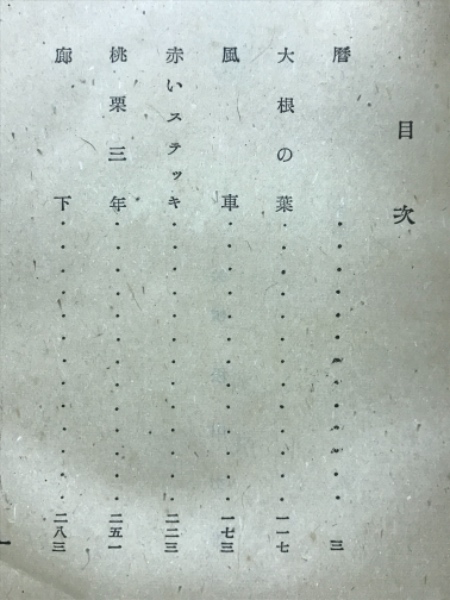 目次
暦・・・・・・・・・・・・・・三
大根の葉・・・・・・・・・・・・・・一一七
風車・・・・・・・・・・・・・・一七三
赤いステッキ・・・・・・・・・・・・・・二二三
桃栗三年・・・・・・・・・・・・・・二五一
廊下・・・・・・・・・・・・・・二八三
一